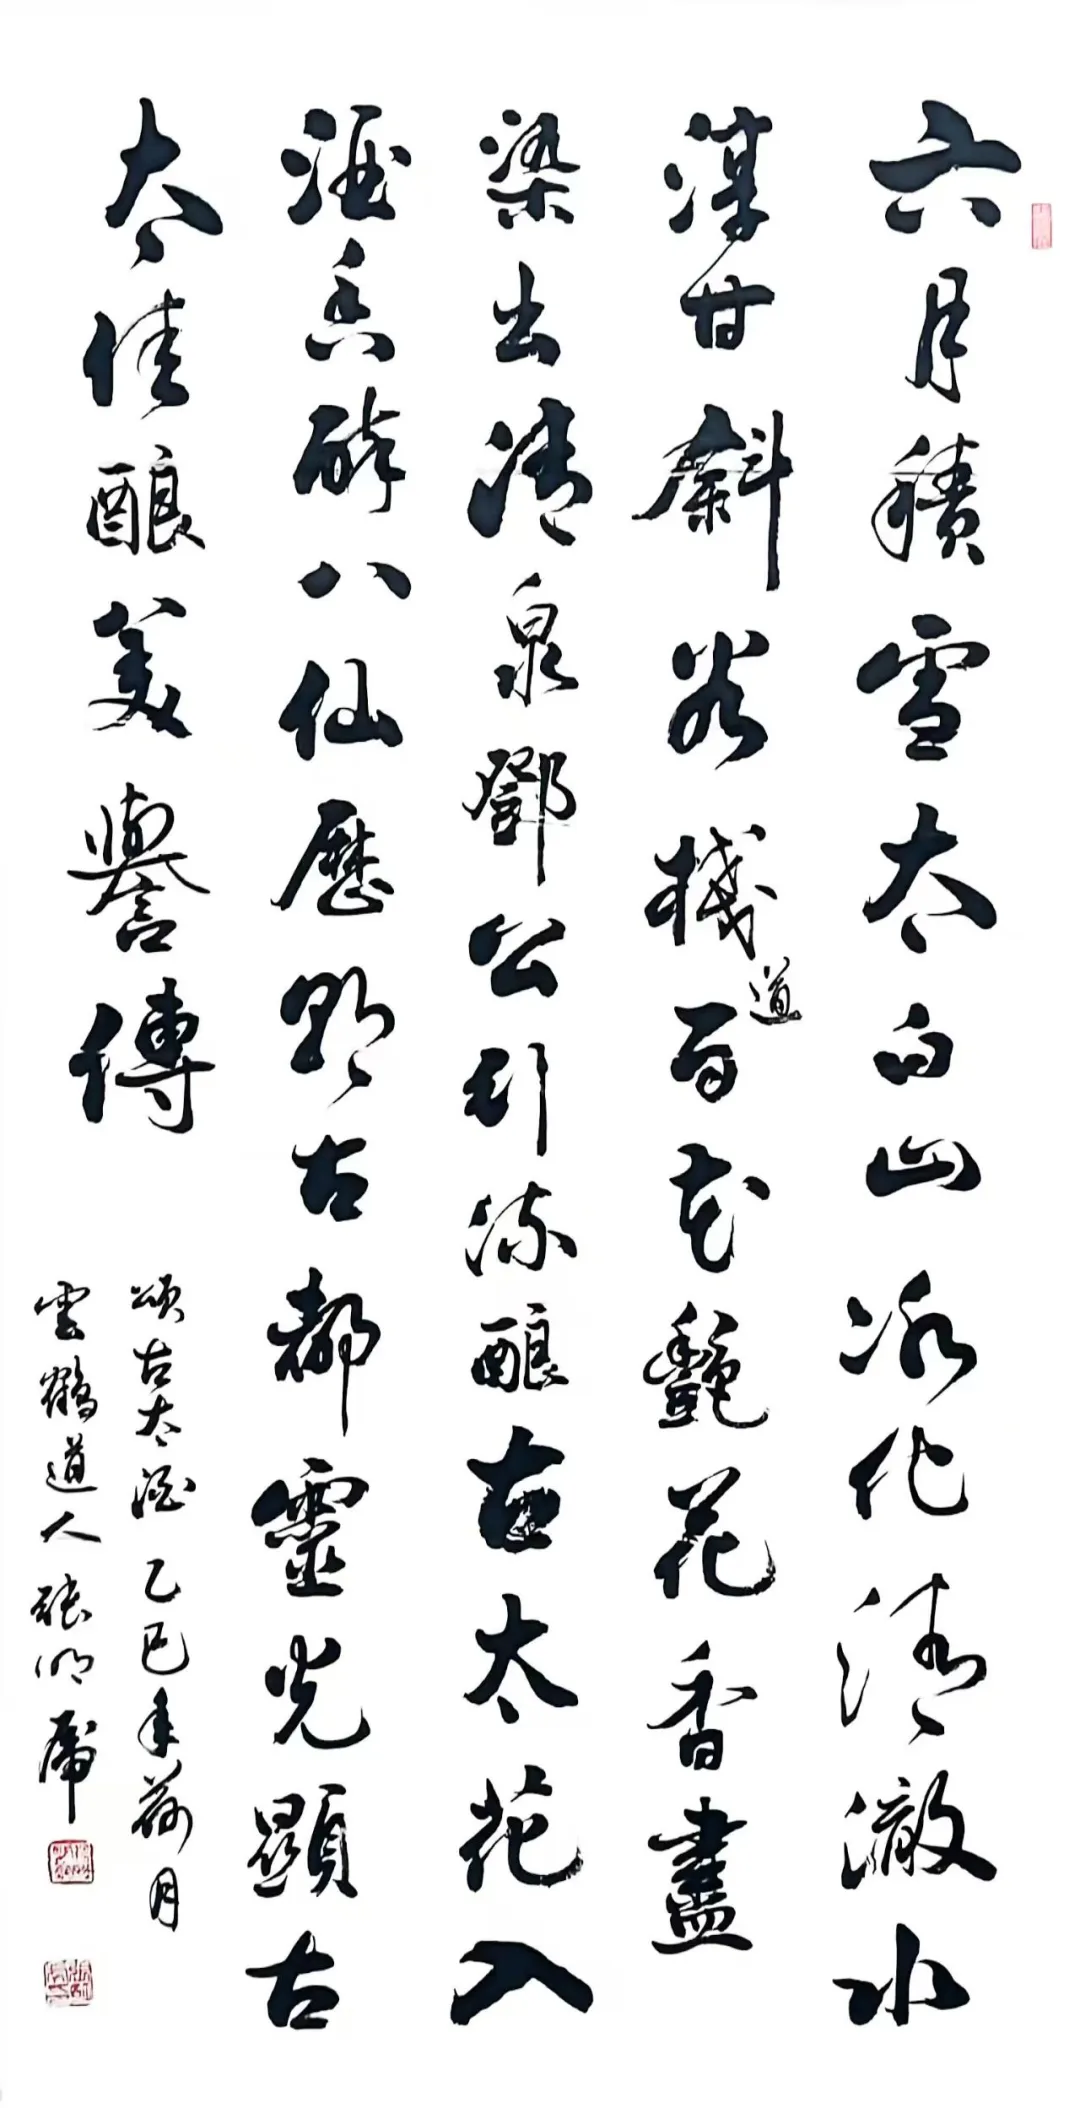 六月積雪太白山冰化清澈水
深甘斜谷棧道百花艷花香盡
染出清泉鄧公引流酿古太花入
酒香醉八仙歷朝古都靈光顯古
太佳酿美譽傳
頌古太酒乙巳年荷月
雲鶴道人張明虎